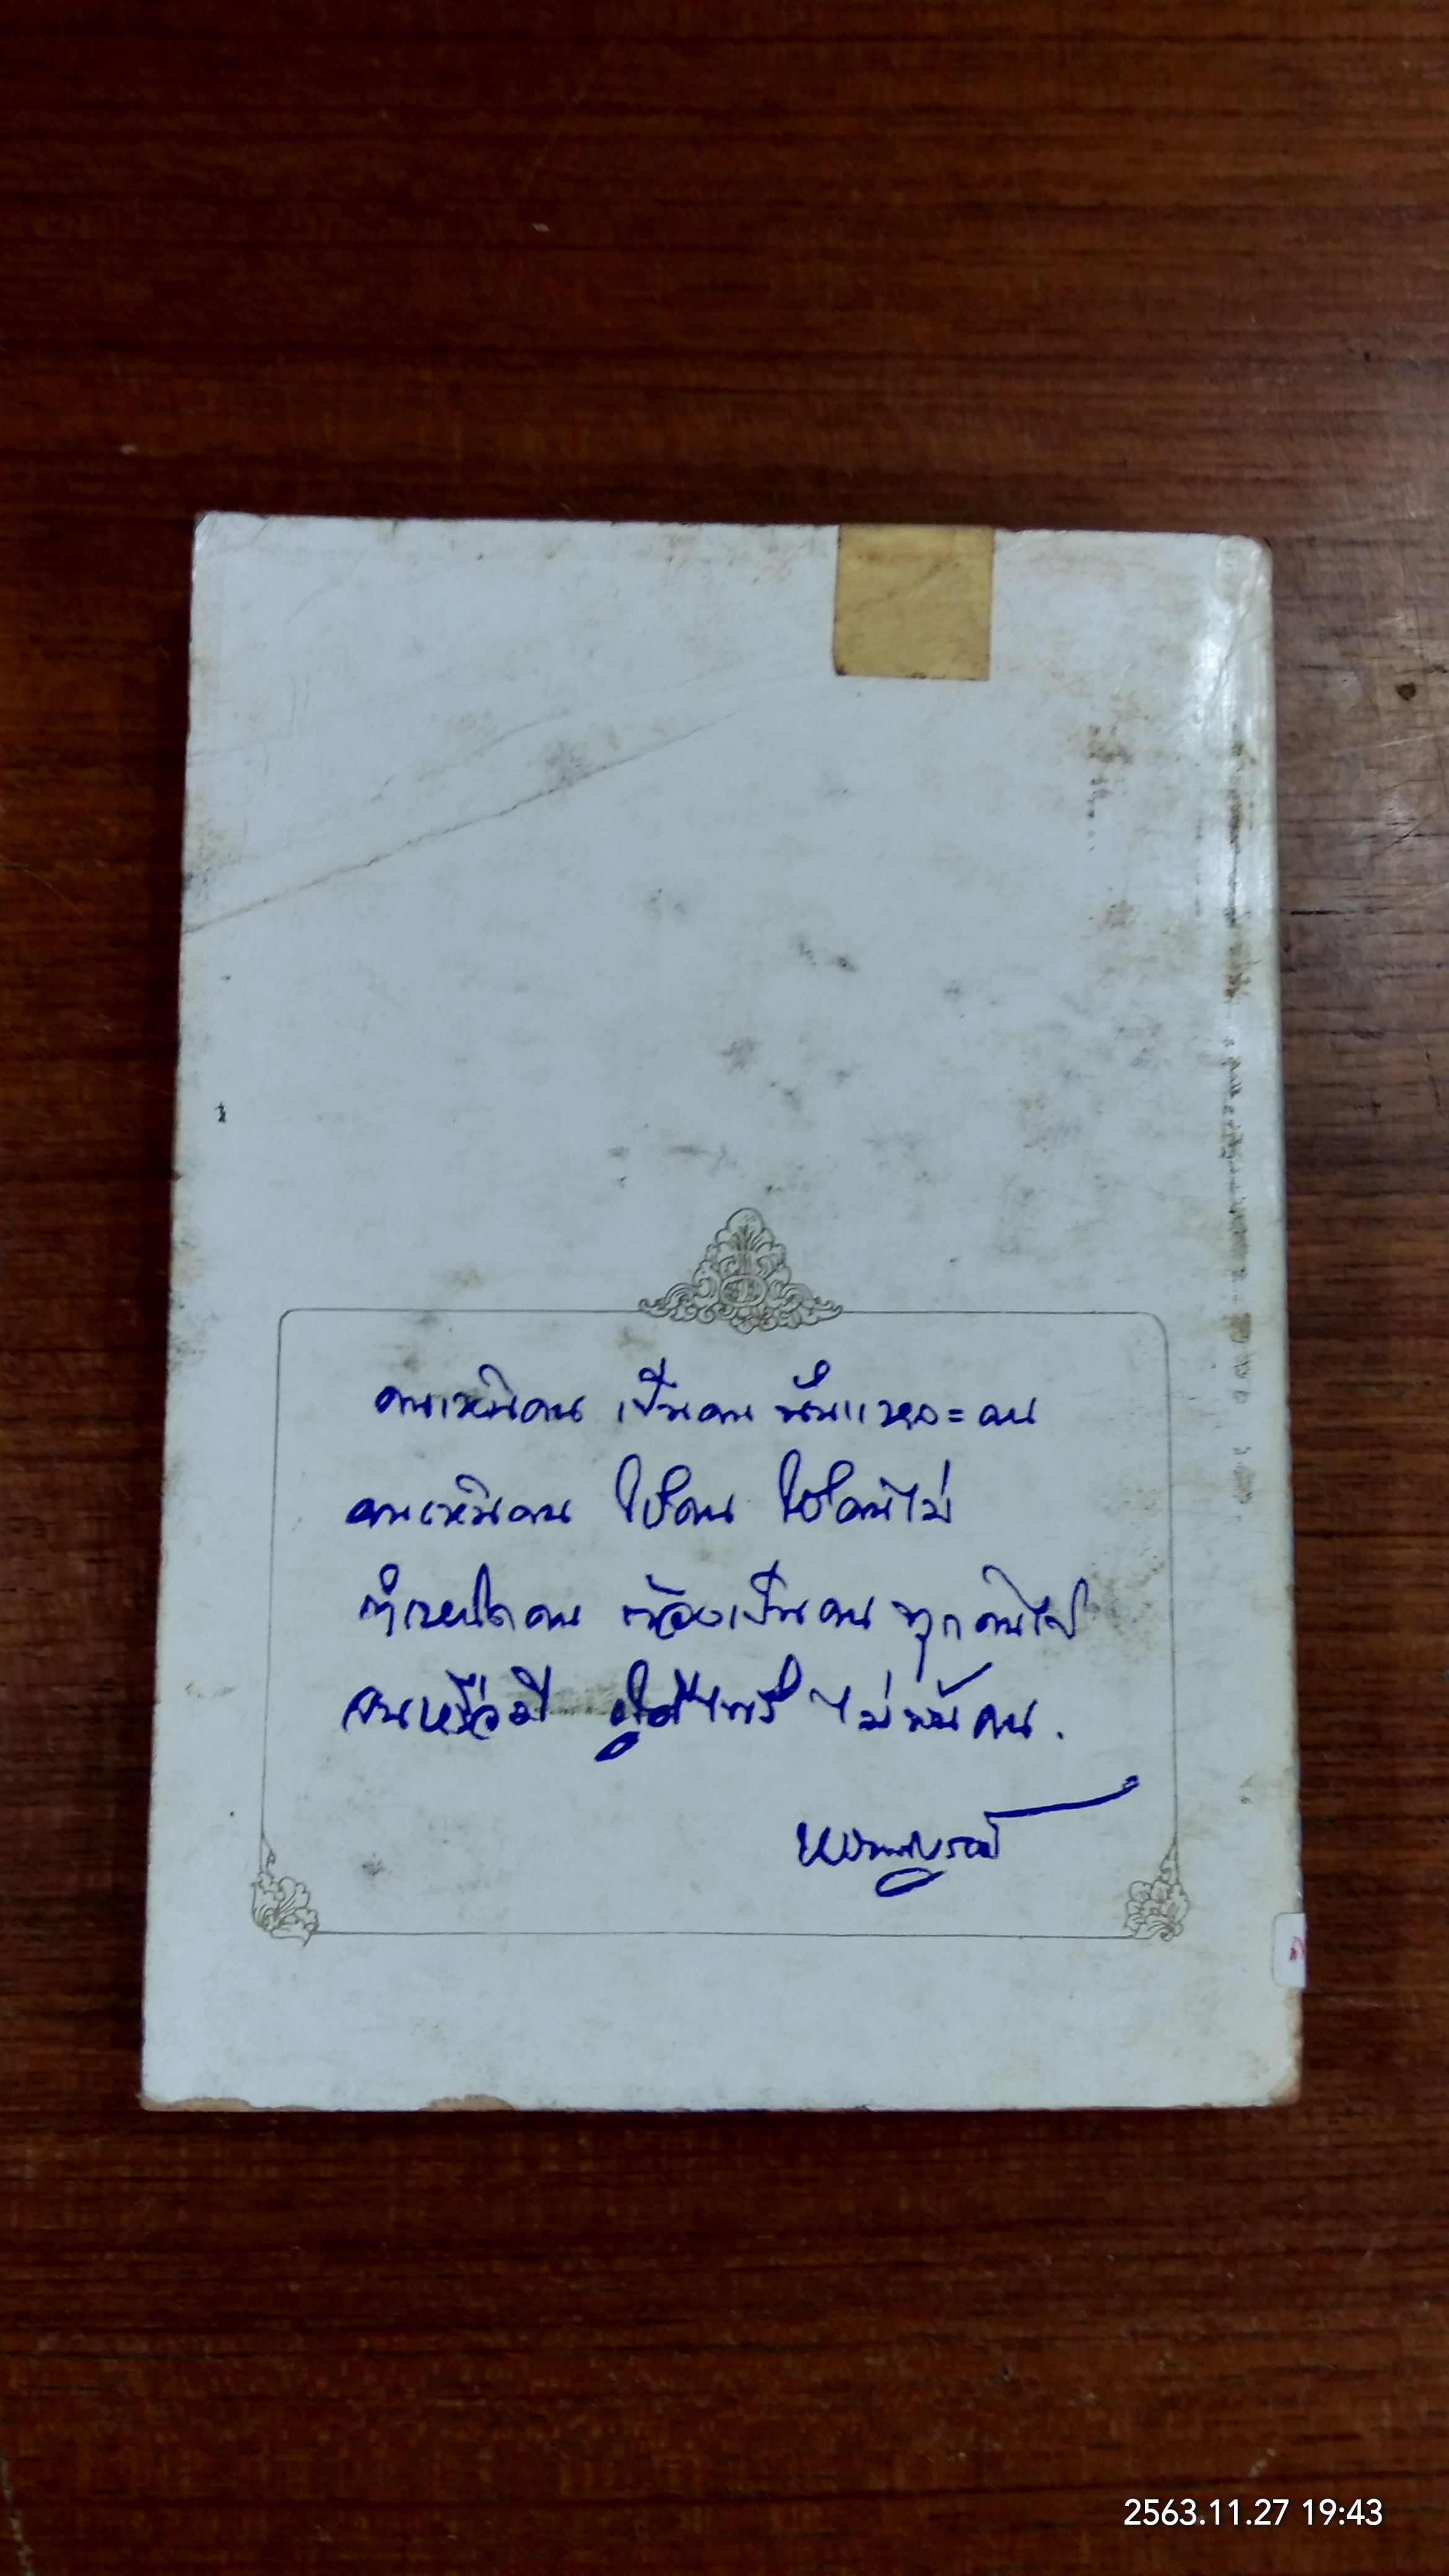 คนเห็นคน เป็นคน นั่นแหละคน
คนเห็นคน ใช่คน ใช่คนไม่
กำเนิดคน ต้องเป็นคน ทุกคนไป
จนหรือมี ผู้ดีไพร่ ไม่พ้นคน.
2563.11.27 19:43